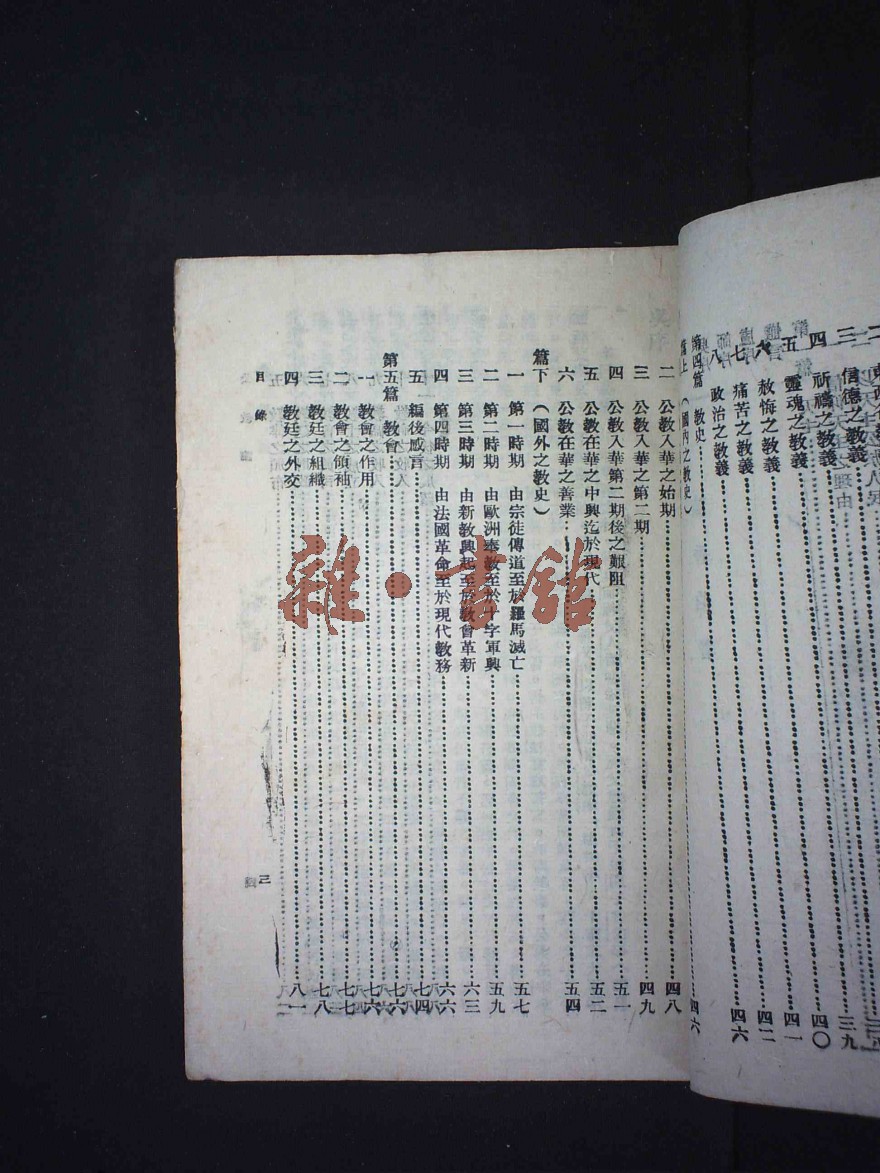 信德之教義 三九
四 祈禱之教義 四〇
五 靈魂之教義 四一
六 赦悔之教義 四二
七 痛苦之教義 四四
八 政治之教義 四六
第四篇 教史 四六
篇上(國內之教史)
二 公教入華之始期 四八
三 公教入華之第二期 四九
四 公教入華第二期後之艱阻 五一
五 公教在華之中興迄於現代 五二
六 公教在華之善業 五四
篇下(國外之教史)
一 第一時期 由宗徒傳道至於羅馬滅亡 五七
二 第二時期 由歐洲奉教至於十字軍興 五九
三 第三時期 由新教興起至於教會革新 六三
四 第四時期 由法國革命至於現代教務 六六
五 編後感言 七四
第五篇 教會 七六
一 教會之作用 七六
二 教會之領袖 七七
三 教廷之組織 七八
四 教廷之外交 八一
目錄
三
雜·書館